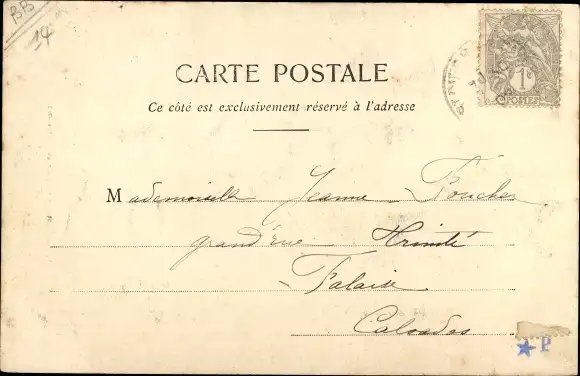 BB
14
CARTE POSTALE
Ce côté est exclusivement réservé à l'adresse
1c
POSTES
Mademoiselle Jeanne Foucher
grand'rue Trinité
Falaise
Calvados
P